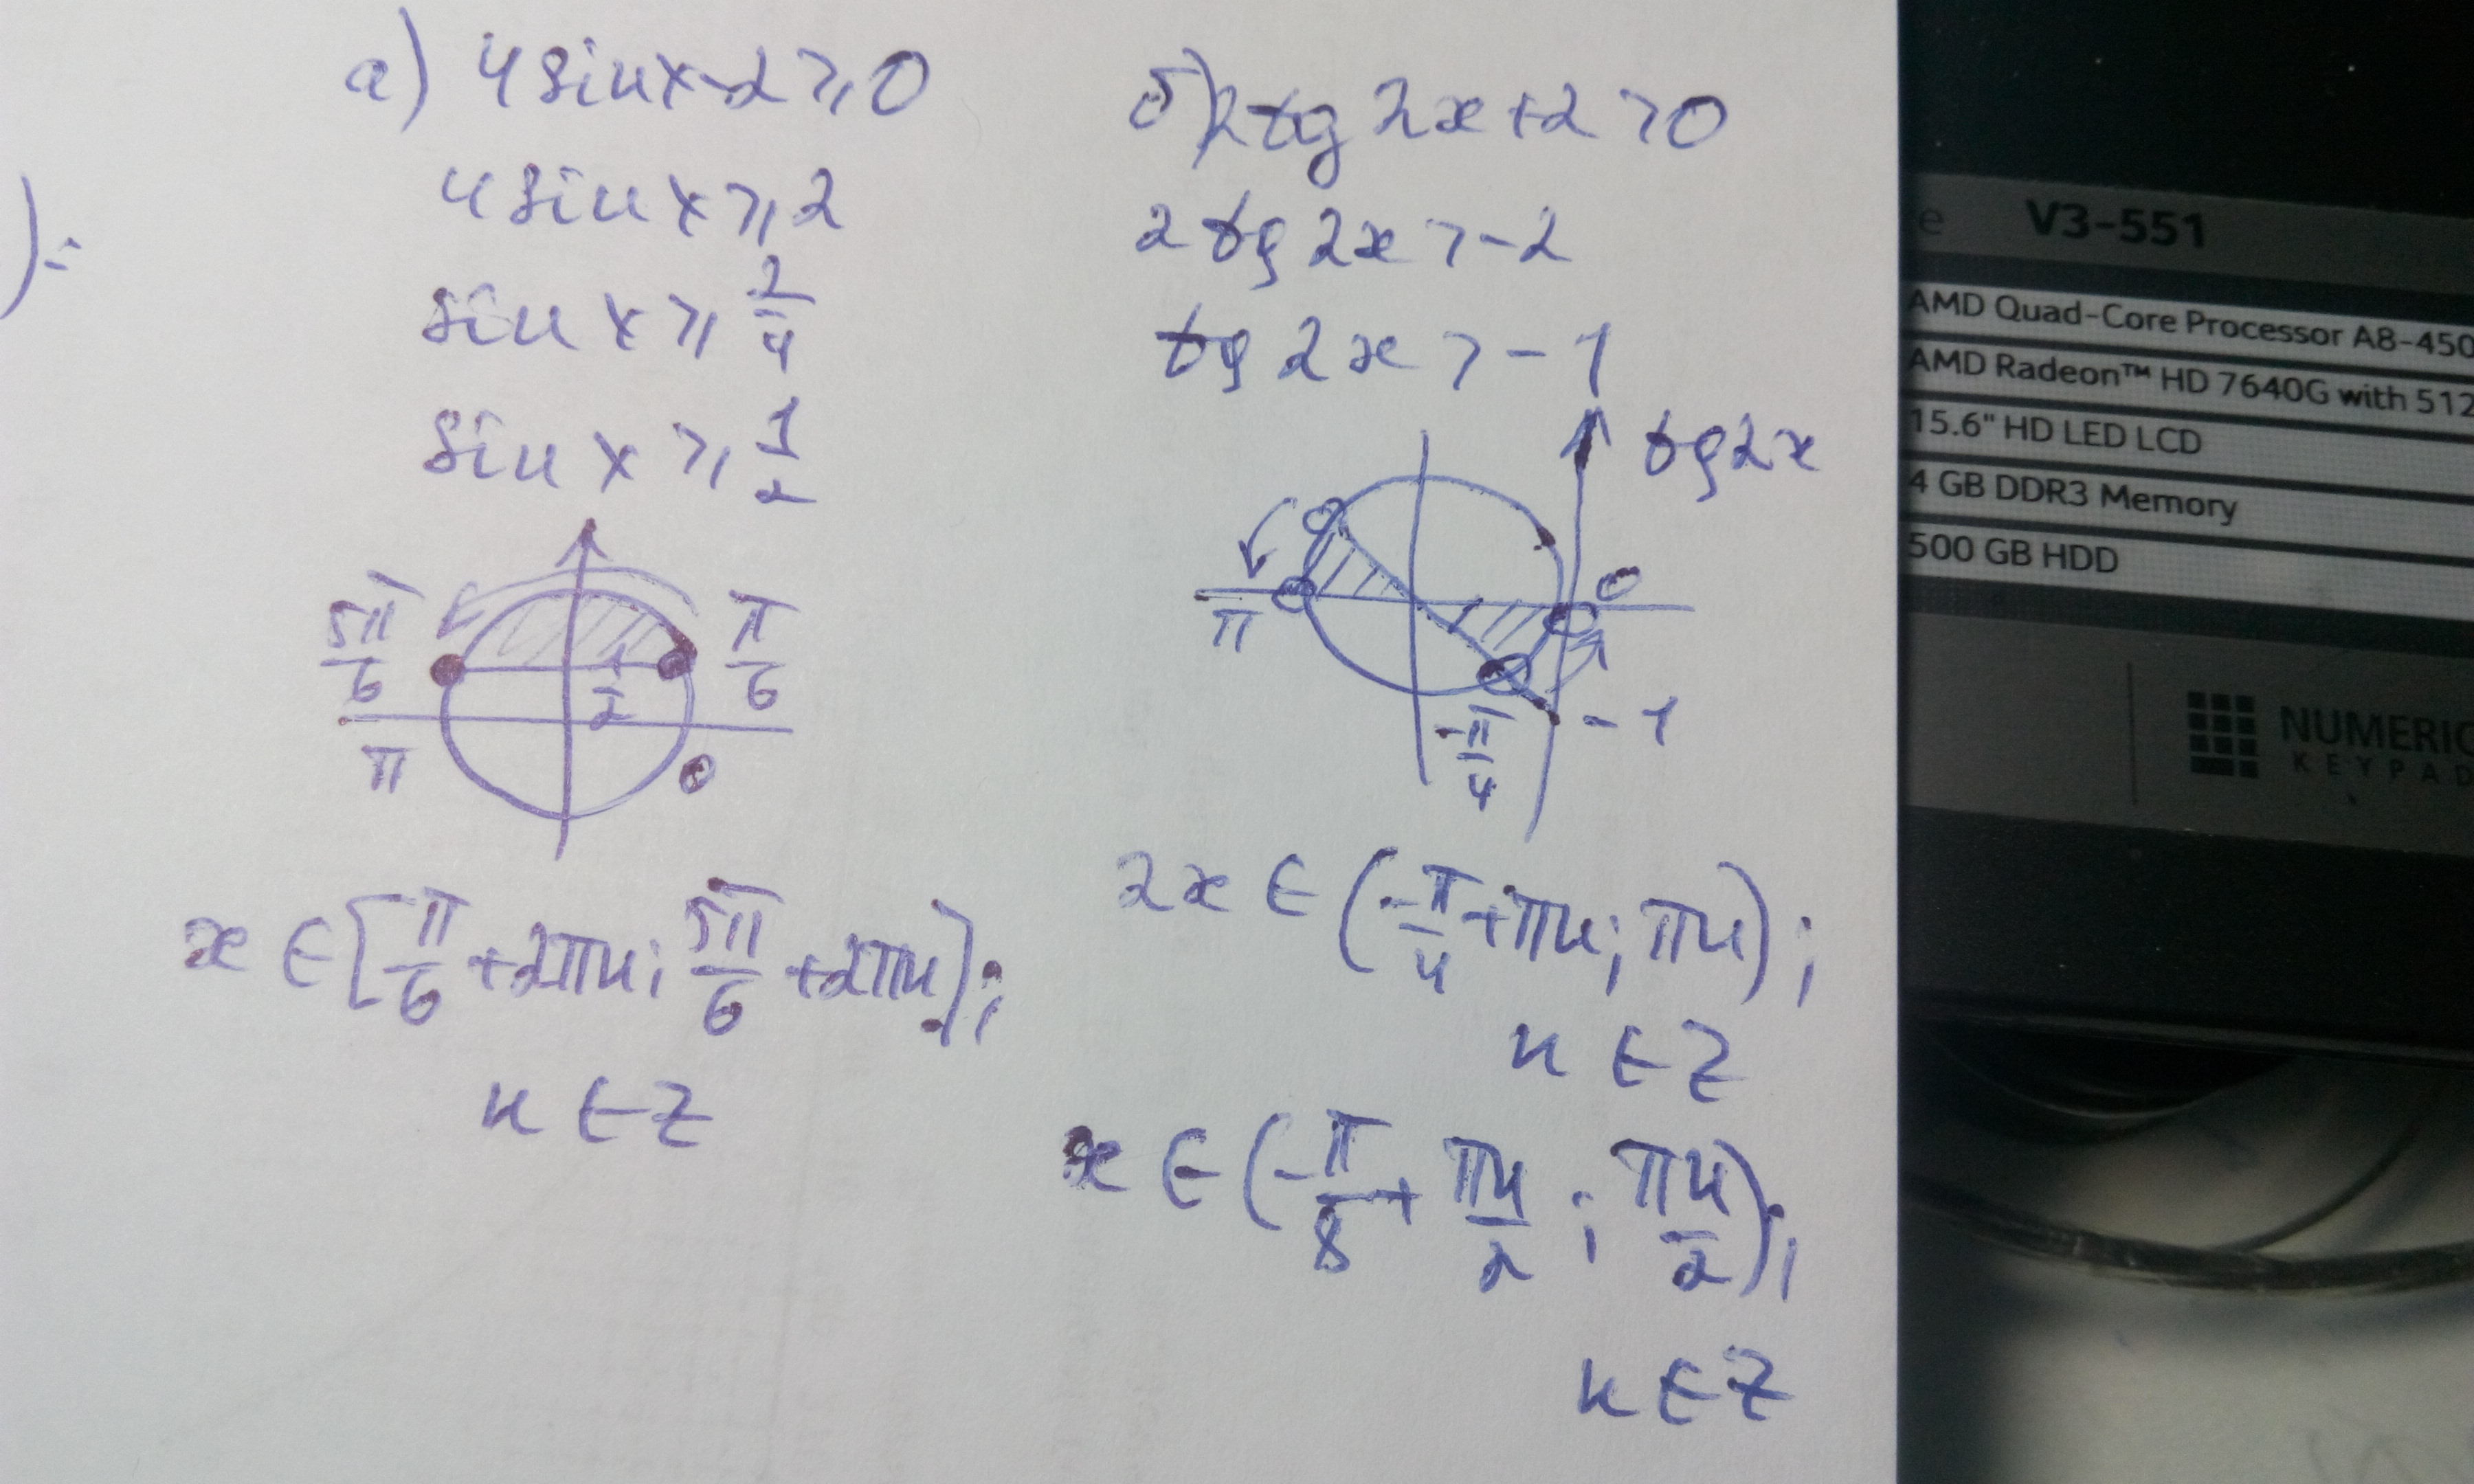 ):
а) 4 sin x - 2 ⩾ 0
4 sin x ⩾ 2
sin x ⩾ 2/4
sin x ⩾ 1/2
5π/6
π/6
1/2
π
0
x ∈ [π/6 + 2πn; 5π/6 + 2πn];
n ∈ Z
б) 2 tg 2x + 2 > 0
2 tg 2x > -2
tg 2x > -1
tg 2x
0
π
-π/4
-1
2x ∈ (-π/4 + πn; πn);
n ∈ Z
x ∈ (-π/8 + πn/2; πn/2);
n ∈ Z
e V3-551
AMD Quad-Core Processor A8-450
AMD Radeon™ HD 7640G with 512
15.6" HD LED LCD
4 GB DDR3 Memory
500 GB HDD
NUMERIC
KEYPAD